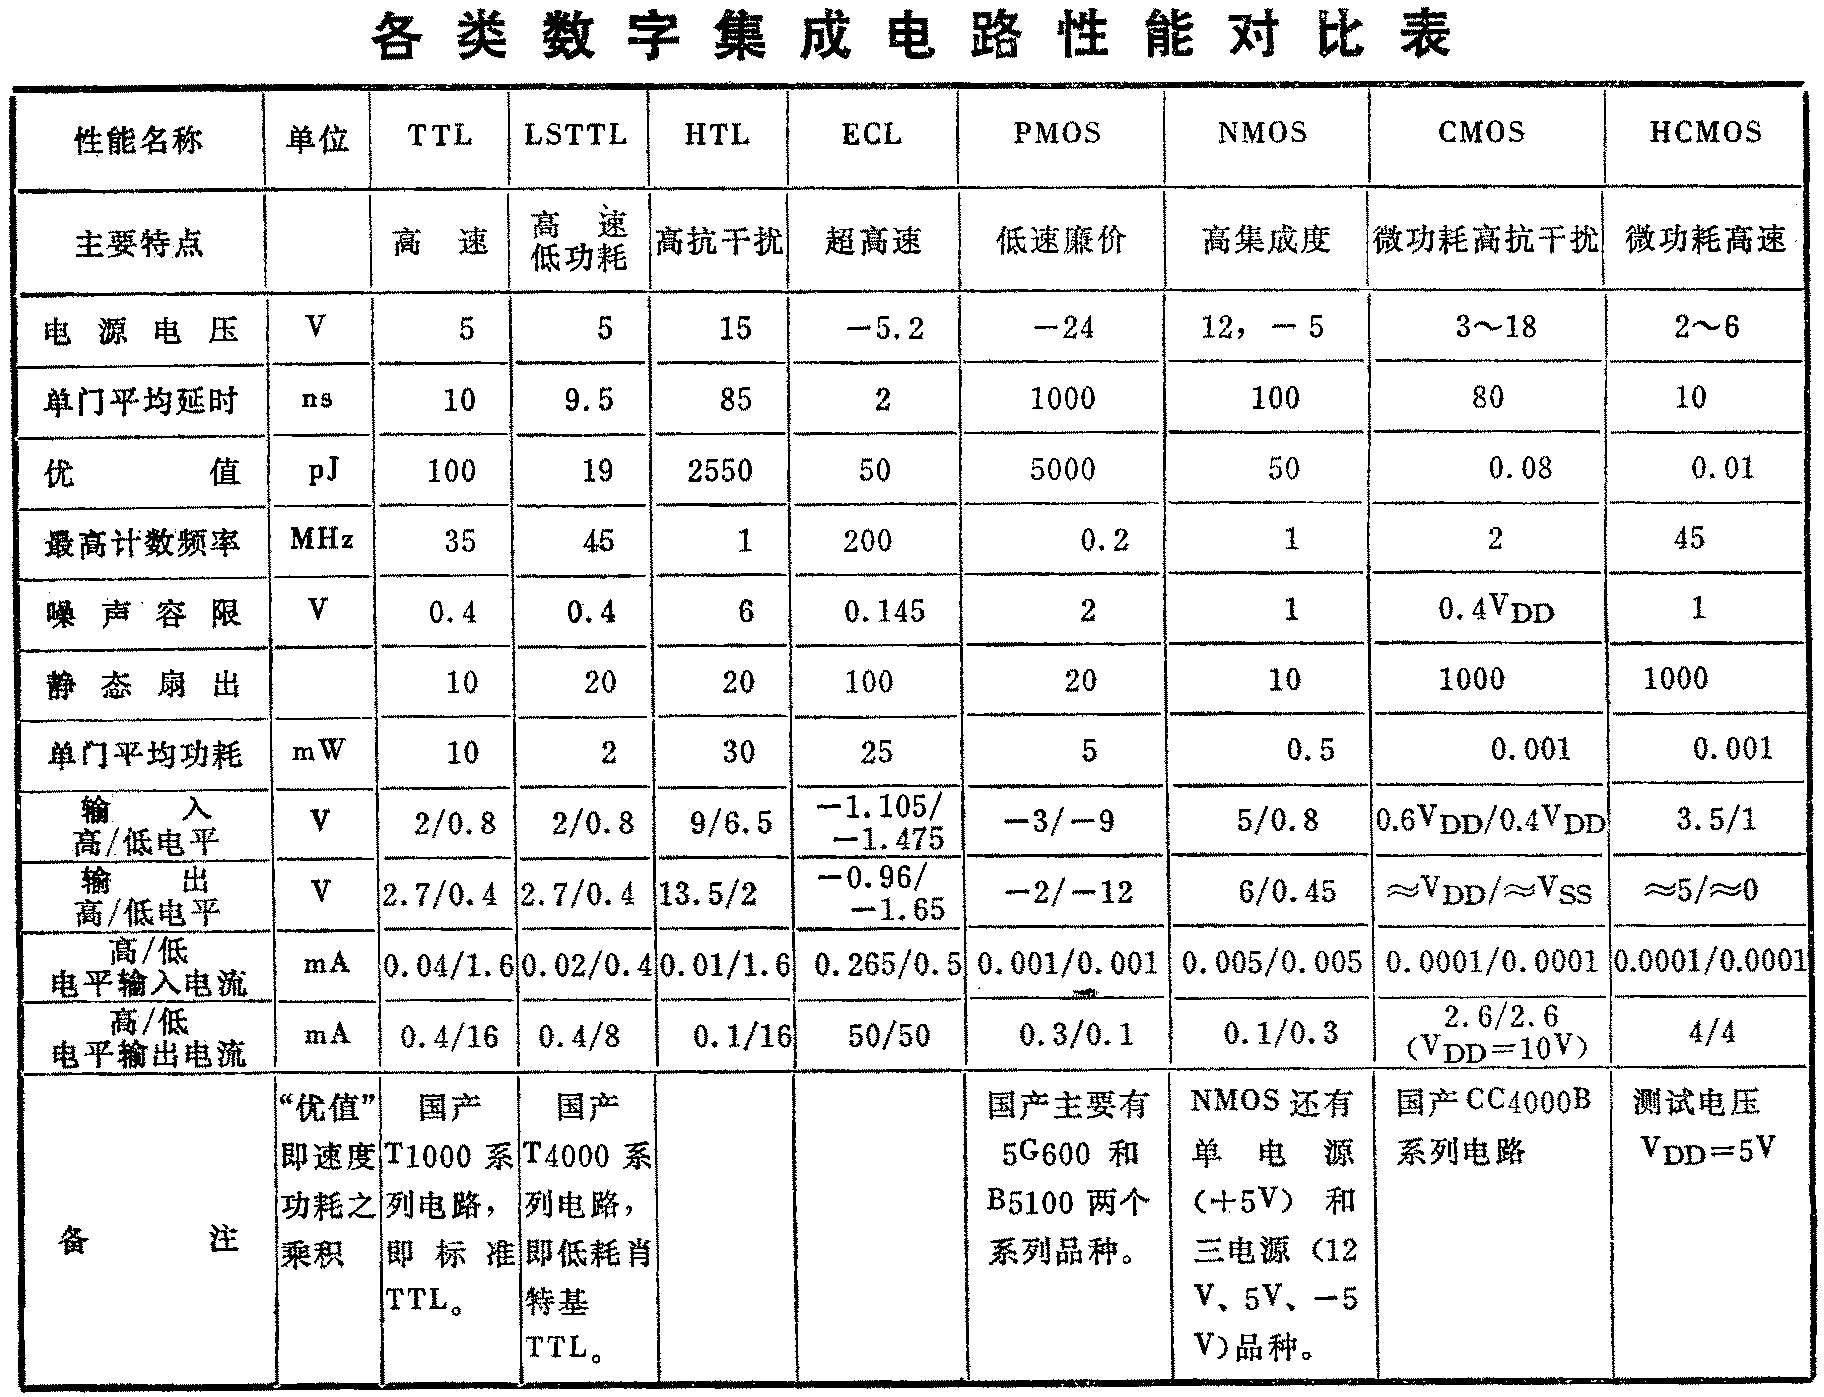 各类数字集成电路性能对比表
性能名称 单位 TTL LSTTL HTL ECL PMOS NMOS CMOS HCMOS
主要特点 高速 高速低功耗 高抗干扰 超高速 低速廉价 高集成度 微功耗高抗干扰 微功耗高速
电源电压 V 5 5 15 －5.2 －24 12，－5 3～18 2～6
单门平均延时 ns 10 9.5 85 2 1000 100 80 10
优值 pJ 100 19 2550 50 5000 50 0.08 0.01
最高计数频率 MHz 35 45 1 200 0.2 1 2 45
噪声容限 V 0.4 0.4 6 0.145 2 1 0.4VDD 1
静态扇出 10 20 20 100 20 10 1000 1000
单门平均功耗 mW 10 2 30 25 5 0.5 0.001 0.001
输入
高/低电平 V 2/0.8 2/0.8 9/6.5 －1.105/－1.475 －3/－9 5/0.8 0.6VDD/0.4VDD 3.5/1
输出
高/低电平 V 2.7/0.4 2.7/0.4 13.5/2 －0.96/－1.65 －2/－12 6/0.45 ≈VDD/≈VSS ≈5/≈0
高/低
电平输入电流 mA 0.04/1.6 0.02/0.4 0.01/1.6 0.265/0.5 0.001/0.001 0.005/0.005 0.0001/0.0001 0.0001/0.0001
高/低
电平输出电流 mA 0.4/16 0.4/8 0.1/16 50/50 0.3/0.1 0.1/0.3 2.6/2.6（VDD＝10V） 4/4
备注
“优值”
即速度
功耗之
乘积
国产
T1000系
列电路，
即标准
TTL。
国产
T4000系
列电路，
即低耗肖
特基
TTL。
国产主要有
5G600和
B5100两个
系列品种。
NMOS还有
单电源
（＋5V）和
三电源（12
V、5V、－5
V）品种。
国产CC4000B
系列电路
测试电压
VDD＝5V